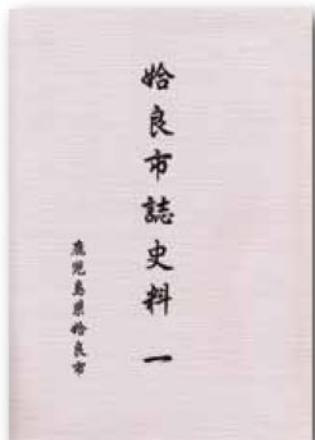 姶良市誌史料 一
鹿児島県姶良市